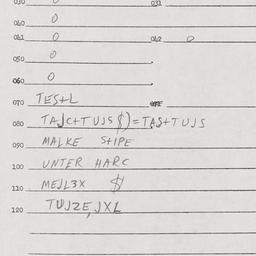 030 0 031
040 0
041 0 042 0
050 0
060 0
070 TEST L
080 TAJC+TUJS $)=TAS+TUJS
090 MALKE STIPE
100 UNTER HARC
110 MEJL3X $
120 TUJZE,JXL